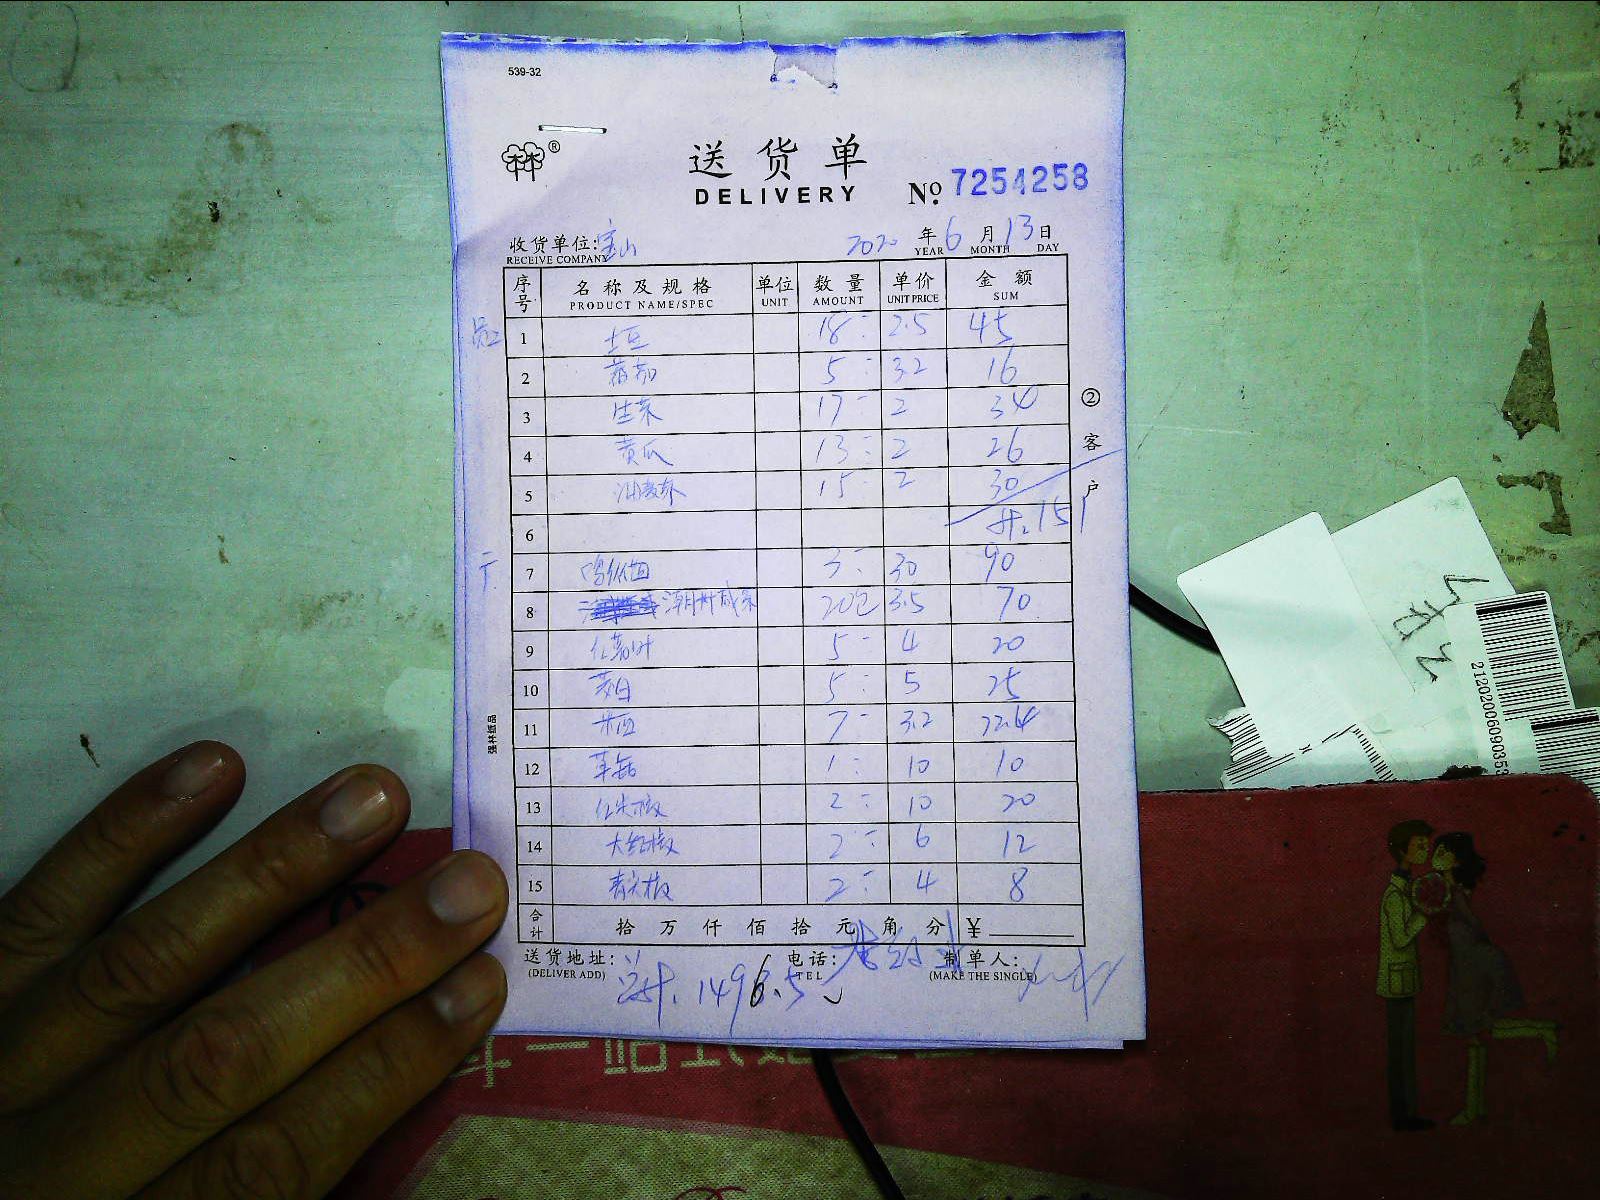 539-32
®
送货单
DELIVERY No. 7254258
收货单位: 宝山 2020 年 6 月 13 日
RECEIVE COMPANY YEAR MONTH DAY
序号 名称及规格 单位 数量 单价 金额
PRODUCT NAME/SPEC UNIT AMOUNT UNIT PRICE SUM
1 土豆 18 2.5 45
2 番茄 5 3.2 16
3 生菜 17 2 34
4 黄瓜 13 2 26
5 油麦菜 15 2 30
6 共.151
7 3 30 90
8 20包 3.5 70
9 5 4 20
10 茭白 5 5 25
11 7 3.2 22.4
12 1 10 10
13 红尖椒 2 10 20
14 大红椒 2 6 12
15 青尖椒 2 4 8
合计 拾 万 仟 佰 拾 元 角 分 ¥
送货地址: 电话: 制单人:
(DELIVER ADD) TEL (MAKE THE SINGLE)
总计. 1496.5
②客户
强林纸品